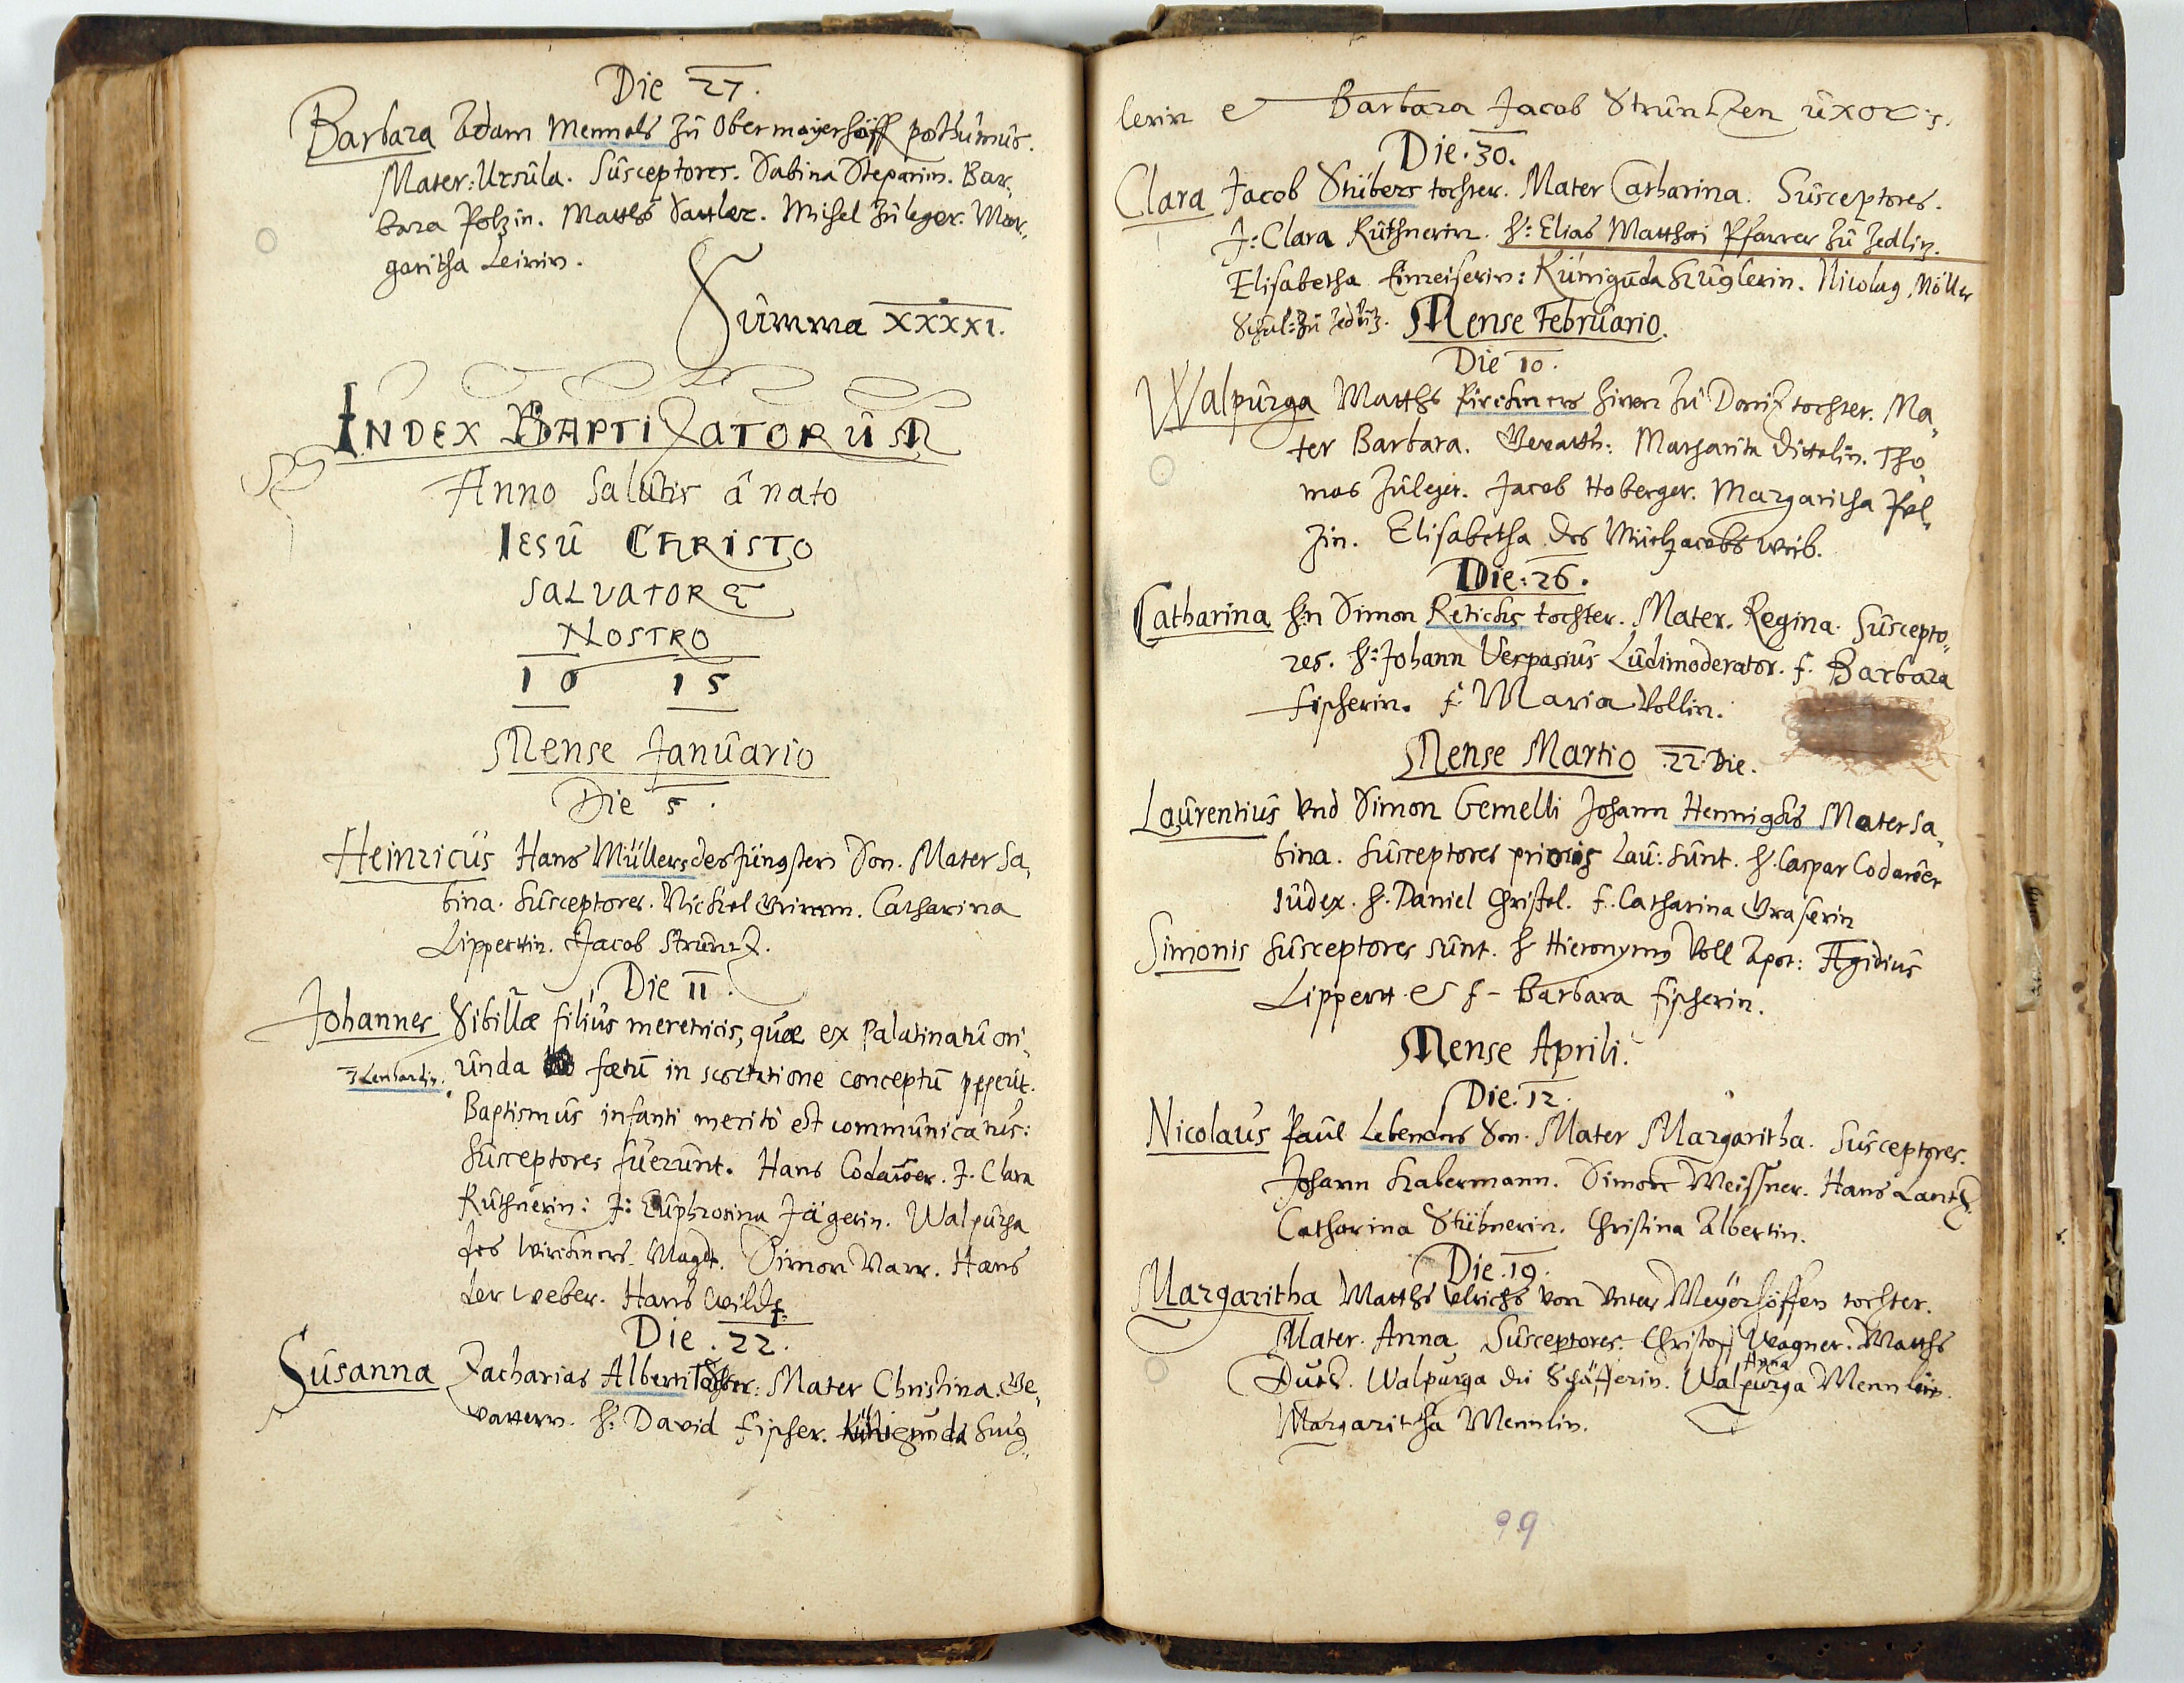 Die 27.
Barbara Adam Mennels zu Obermayerhöff posthumus.
Mater: Ursula. Susceptores. Sabina Steparin. Bar-
bara Polzin. Matthes Sattler. Michel Zuleger. Mar-
garitha Leinin.
Summa XXXXI.
INDEX BAPTIZATORUM
Anno Salutis â nato
IESU CHRISTO
SALVATORE
NOSTRO
16 15
Mense Januario
Die 5.
Heinricus Hans Müllers des Jüngsten Son. Mater Sa-
bina. Susceptores. Nickel Grimm. Catharina
Lippertin. Jacob Struntz.
Die 11.
Johannes Sibillæ filius meretricis, quæ ex Palatinatu ori-
Lenhardin. unda fœtū in scortatione conceptū peperit.
Baptismus infanti meritò est communicatus:
Susceptores fuerunt. Hans Codamer. J. Clara
Ruthnerin: J: Euphrosina Jägerin. Walpurga
des Magdt. Simon Narr. Hans
der weber. Hans
Die 22.
Susanna Zacharias Alberti Tochter: Mater Christina. Ge-
vattern. H: David Fischer. Kunigunda Hug-
lerin & Barbara Jacob Struntzen uxor
Die 30.
Clara Jacob Stübers tochter. Mater Catharina. Susceptores.
J: Clara Ruthnerin. H: Elias Matthæi Pfarrer zu Zedliz.
Elisabetha Einreiserin: Kunigūda Huglerin. Nicolaus Möller
Schul: zu Zedliz. Mense Februario.
Die 10.
Walpurga Matths Kirchners zu tochter. Ma-
ter Barbara. Gevatth: Margarita Dittelin. Tho-
mas Zuleger. Jacob Hoberger. Margaritha Pel-
zin. Elisabetha des weib.
Die: 26.
Catharina Hn Simon Retichs tochter. Mater. Regina. Suscepto-
res. H: Johann Vespasius Ludimoderator. f. Barbara
Fischerin. f. Maria Vollin.
Mense Martio 22 Die.
Laurentius und Simon Gemelli Johann Hennighs Mater Sa-
bina. Susceptores prioris Lau: sunt. H. Caspar Codamer
Iudex. H. Daniel Christel. f. Catharina Graserin
Simonis Susceptores sunt. H Hieronymus Voll Apot: Ægidius
Lippertt & f Barbara Fischerin.
Mense Aprili.
Die. 12.
Nicolaus Paul Lebenders Son. Mater Margaritha. Susceptores.
Johann Habermann. Simon Meissner. Hans Lantz.
Catharina Stübnerin. Christina Albertin.
Die. 19.
Margaritha Matths Ulrichs von Unter Meyerhöffen tochter.
Mater. Anna Susceptores. Christoff Wagner. Matths
Walpurga die Schäfferin. Walpurga Anna Mennlin.
Margaritha Mennlin.
99